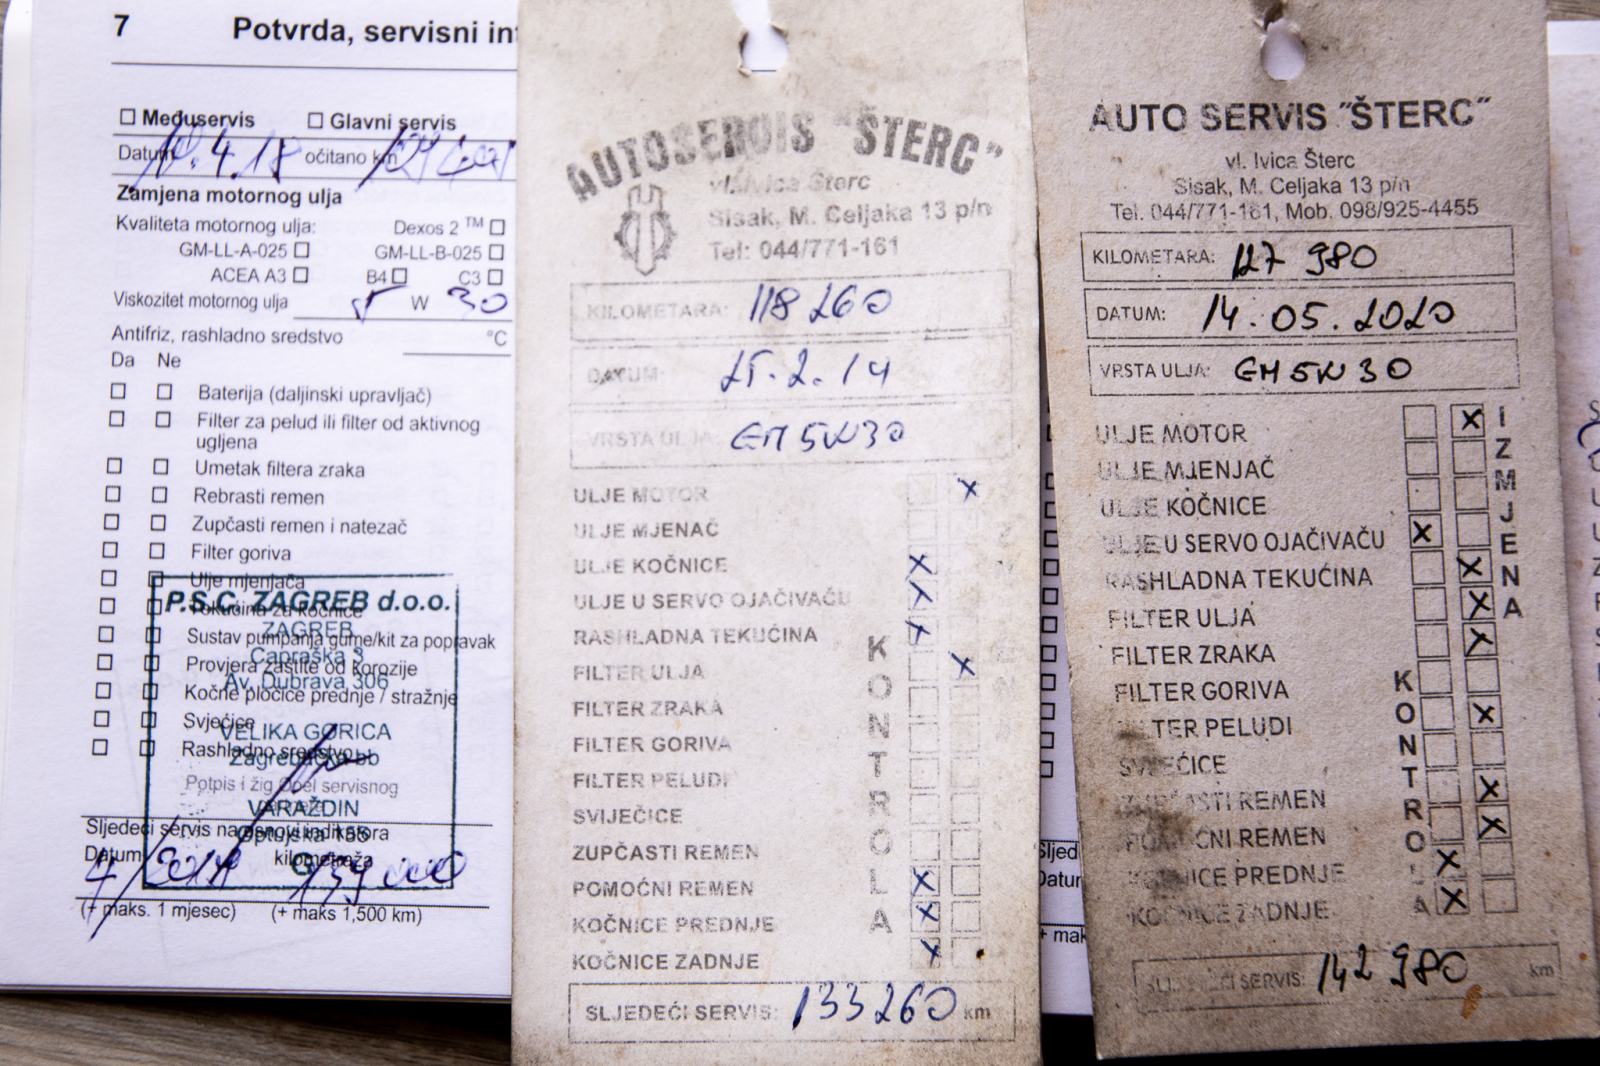 7 Potvrda, servisni in
☐ Međuservis ☐ Glavni servis
Datum 4.18 očitano km
Zamjena motornog ulja
Kvaliteta motornog ulja: Dexos 2 ™ ☐
GM-LL-A-025 ☐ GM-LL-B-025 ☐
ACEA A3 ☐ B4 ☐ C3 ☐
Viskozitet motornog ulja 5 W 30
Antifriz, rashladno sredstvo °C
Da Ne
☐ ☐ Baterija (daljinski upravljač)
☐ ☐ Filter za pelud ili filter od aktivnog
ugljena
☐ ☐ Umetak filtera zraka
☐ ☐ Rebrasti remen
☐ ☐ Zupčasti remen i natezač
☐ ☐ Filter goriva
☐ ☐ Ulje mjenjača
☐ ☐ Tekućina za kočnice
☐ ☐ Sustav pumpanja gume/kit za popravak
☐ ☐ Provjera zaštite od korozije
☐ ☐ Kočne pločice prednje / stražnje
☐ ☐ Svjećice
☐ ☐ Rashladno sredstvo
Potpis i žig Opel servisnog
Sljedeći servis na osnovi indikatora
Datum kilometraža
139 000
(+ maks. 1 mjesec) (+ maks 1,500 km)
P.S.C. ZAGREB d.o.o.
ZAGREB
Capraška 3
Av. Dubrava 306
VELIKA GORICA
Zagrebačka bb
VARAŽDIN
Optujska 155
AUTOSERVIS "ŠTERC"
vl. Ivica Šterc
Sisak, M. Celjaka 13 p/n
Tel: 044/771-161
KILOMETARA: 118 260
DATUM: 25.2.14
VRSTA ULJA: GM 5W30
ULJE MOTOR x
ULJE MJENAČ
ULJE KOČNICE x
ULJE U SERVO OJAČIVAČU x
RASHLADNA TEKUĆINA x
FILTER ULJA x
FILTER ZRAKA
FILTER GORIVA
FILTER PELUDI
SVIJEĆICE
ZUPČASTI REMEN
POMOĆNI REMEN x
KOČNICE PREDNJE x
KOČNICE ZADNJE x
KONTROLA
SLJEDEĆI SERVIS: 133260 km
AUTO SERVIS "ŠTERC"
vl. Ivica Šterc
Sisak, M. Celjaka 13 p/n
Tel. 044/771-161, Mob. 098/925-4455
KILOMETARA: 127 980
DATUM: 14.05.2020
VRSTA ULJA: GM 5W30
ULJE MOTOR x
ULJE MJENJAČ
ULJE KOČNICE
ULJE U SERVO OJAČIVAČU x
RASHLADNA TEKUĆINA x
FILTER ULJA x
FILTER ZRAKA x
FILTER GORIVA
FILTER PELUDI x
SVJEĆICE
ZUPČASTI REMEN x
POMOĆNI REMEN x
KOČNICE PREDNJE x
KOČNICE ZADNJE x
KONTROLA
IZMJENA
SLJEDEĆI SERVIS: 142 980 km
Sljed
Datum
+ mak